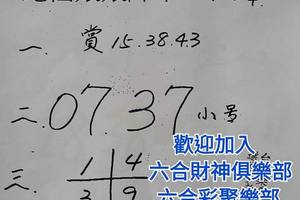 一、賞15.38.43
二、07.37小号
歡迎加入
六合財神俱樂部
三、
1 4
3 9
六合彩聚樂部